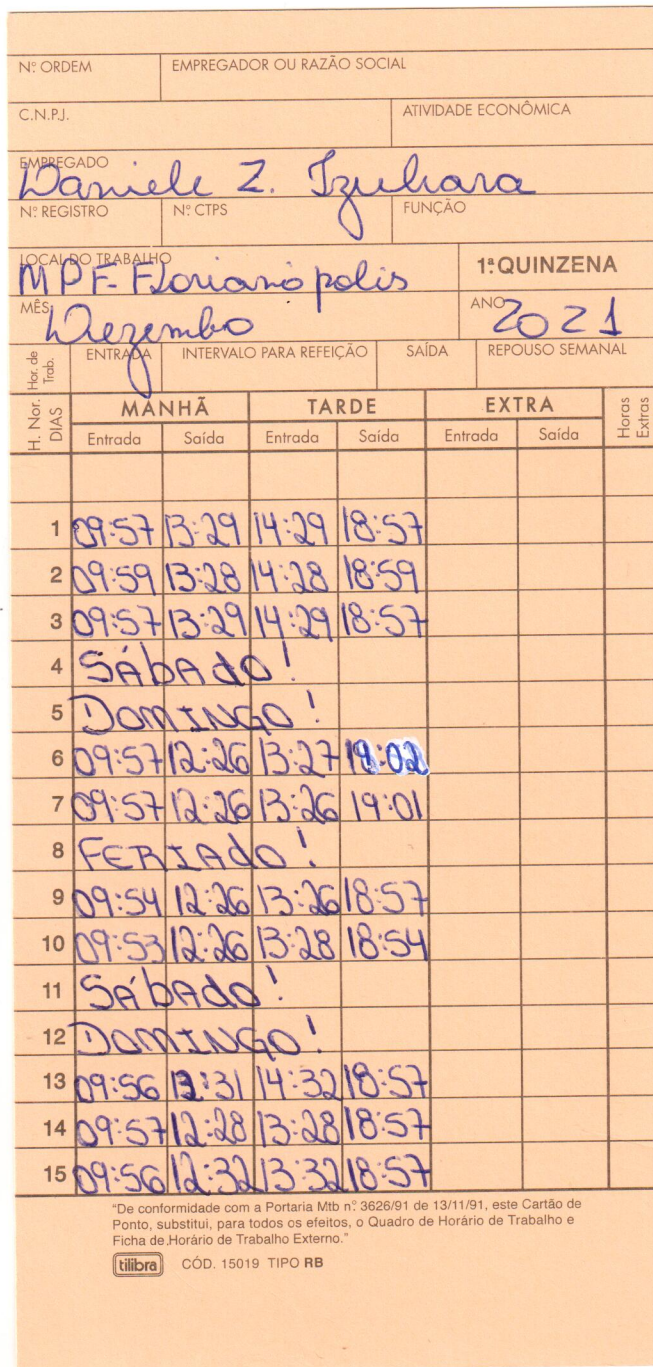 Nº ORDEM EMPREGADOR OU RAZÃO SOCIAL
C.N.P.J. ATIVIDADE ECONÔMICA
EMPREGADO
Daniele Z. Izuhara
Nº REGISTRO Nº CTPS FUNÇÃO
LOCAL DO TRABALHO 1ª QUINZENA
MPF Florianópolis
MÊS ANO
Dezembo 2021
Hor. de Trab. ENTRADA INTERVALO PARA REFEIÇÃO SAÍDA REPOUSO SEMANAL
H. Nor. DIAS MANHÃ TARDE EXTRA Horas Extras
Entrada Saída Entrada Saída Entrada Saída
1 09:57 13:29 14:29 18:57
2 09:59 13:28 14:28 18:59
3 09:57 13:29 14:29 18:57
4 SÁbAdO!
5 DOMINGO!
6 09:57 12:26 13:27 19:02
7 09:57 12:26 13:26 19:01
8 FERIAdO!
9 09:54 12:26 13:26 18:57
10 09:53 12:26 13:28 18:54
11 SÁbAdO!
12 DOMINGO!
13 09:56 13:31 14:32 18:57
14 09:57 12:28 13:28 18:57
15 09:56 12:32 13:32 18:57
"De conformidade com a Portaria Mtb nº 3626/91 de 13/11/91, este Cartão de
Ponto, substitui, para todos os efeitos, o Quadro de Horário de Trabalho e
Ficha de Horário de Trabalho Externo."
tilibra CÓD. 15019 TIPO RB